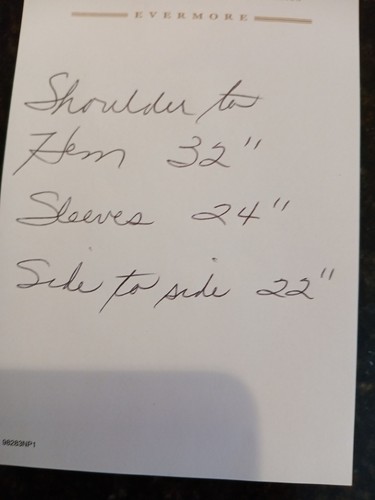 EVERMORE
Shoulder to
Hem 32"
Sleeves 24"
Side to side 22"
98283NP1